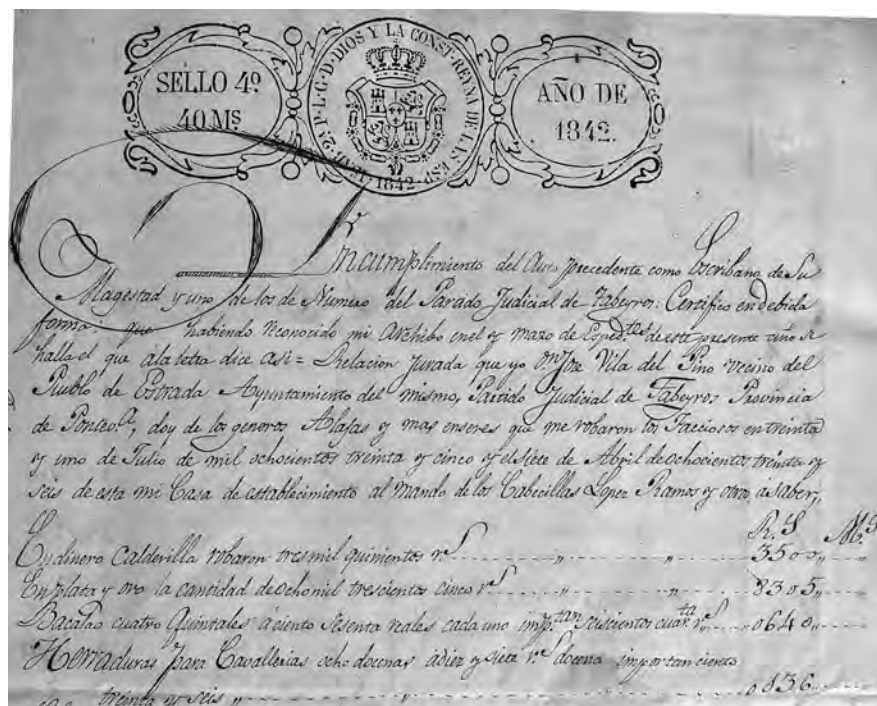 SELLO 4º
40 Mˢ
P. L. G. D. DIOS Y LA CONST. REYNA DE LAS ESP.
1842
AÑO DE
1842.
En cumplimiento del Auto precedente como Escribano de Su
Magestad y uno de los de Numero del Partido Judicial de Tabeyros: Certifico en debida
forma: que habiendo reconocido mi Archibo en el y mazo de Espedᵗᵉˢ de este presente año se
halla el que ala letra dice asi = Relacion jurada que yo Dⁿ Jose Vila del Pino vecino del
Pueblo de Estrada Ayuntamiento del mismo, Partido Judicial de Tabeyros Provincia
de Pontevᵃ, doy de los generos Alajas y mas enseres que me robaron los Facciosos en treinta
y uno de Julio de mil ochocientos treinta y cinco y el siete de Abril de ochocientos treinta y
seis de esta mi Casa de establecimiento al mando de los Cabecillas Lopez Ramos y otros, a saber,,
R.ˢ M.ˢ
En dinero Calderilla robaron tres mil quinientos rˢ 3500,,
En plata y oro la cantidad de ocho mil trescientos cinco rˢ 8305,,
Bacalao cuatro Quintales á ciento sesenta reales cada uno impᵗᵃⁿ seiscientos cuarᵗᵃ rˢ 0640,,
Herraduras para Cavallerias ocho docenas á diez y siete rˢ docena importan ciento
treinta y seis 0136,,